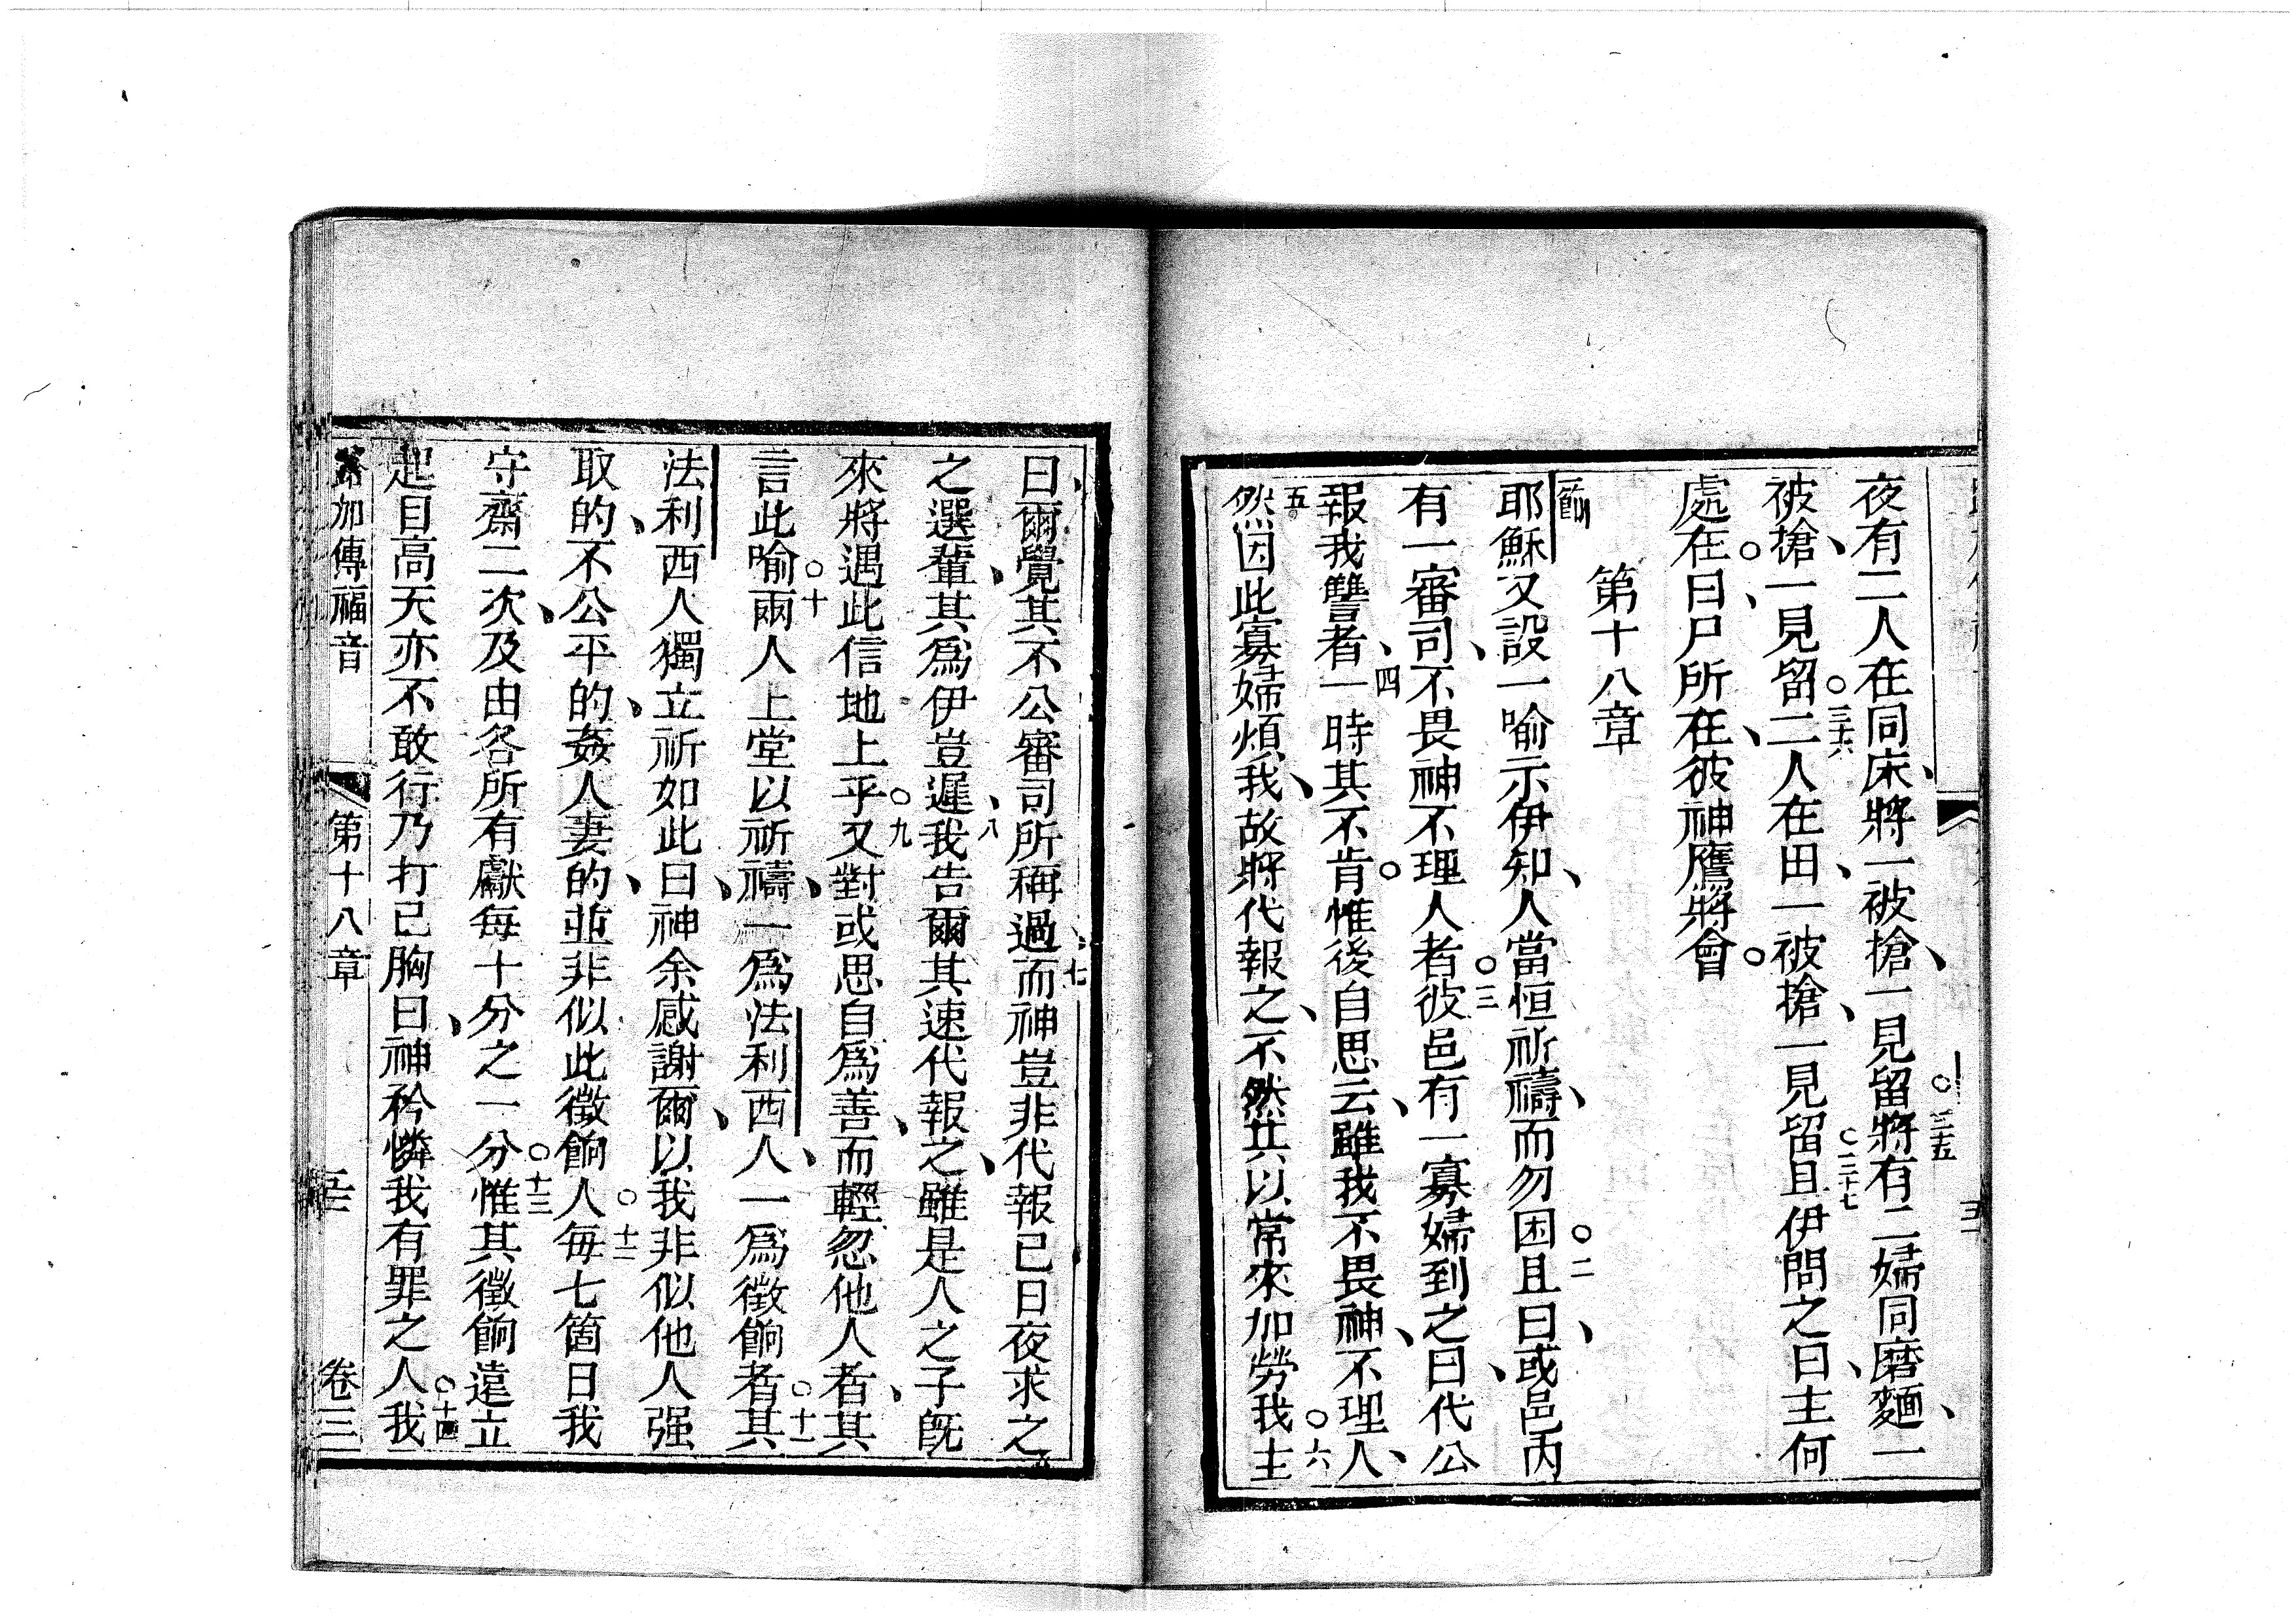 夜有二人在同床、將一被搶、一見留○三十五將有二婦同磨麵、一
被搶、一見留○三十六二人在田、一被搶、一見留○三十七且伊問之曰、主何
處在○曰、尸所在、彼神鷹將會○
第十八章
耶穌又設一喻示伊知、人當恒祈禱、而勿困○二且曰、或邑內
有一審司、不畏神不理人者○三彼邑有一寡婦到之曰、代公
報我讐者、四一時其不肯○惟後自思云、雖我不畏神、不理人、
五然因此寡婦煩我、故將代報之、不然其以常來加勞我○六主
曰、爾覺其不公審司所稱過、七而神豈非代報己日夜求之
之選輩、其爲伊豈遲、八我告爾其速代報之、雖是人之子旣
來將遇此信地上乎○九又對或思自爲善、而輕忽他人者、其
言此喻○十兩人上堂以祈禱、一爲法利西人、一爲徵餉者○十一其
法利西人獨立祈如此曰、神余感謝爾、以我非似他人强
取的、不公平的、姦人妻的、並非似此徵餉人○十二每七箇日我
守齋二次、及由各所有獻每十分之一分○十三惟其徵餉遠立
起目高天亦不敢行乃打己胸曰、神矜憐我有罪之人○十四我
路加傳福音 第十八章 卷三